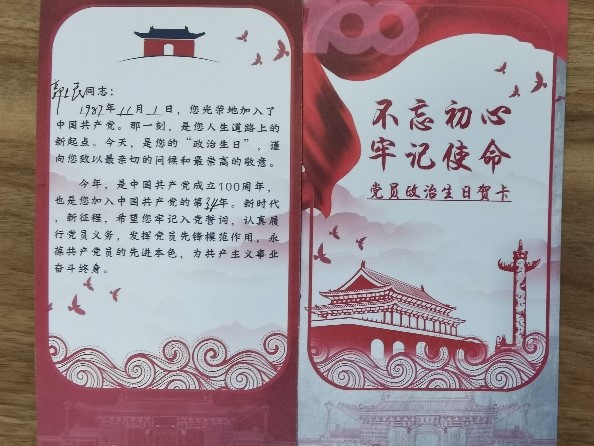 同志：
1987年11月1日，您光荣地加入了
中国共产党。那一刻，是您人生道路上的
新起点。今天，是您的“政治生日”，谨
向您致以最亲切的问候和最崇高的敬意。
今年，是中国共产党成立100周年，
也是您加入中国共产党的第34年。新时代
，新征程，希望您牢记入党誓词，认真履
行党员义务，发挥党员先锋模范作用，永
葆共产党员的先进本色，为共产主义事业
奋斗终身。
100
不忘初心
牢记使命
党员政治生日贺卡